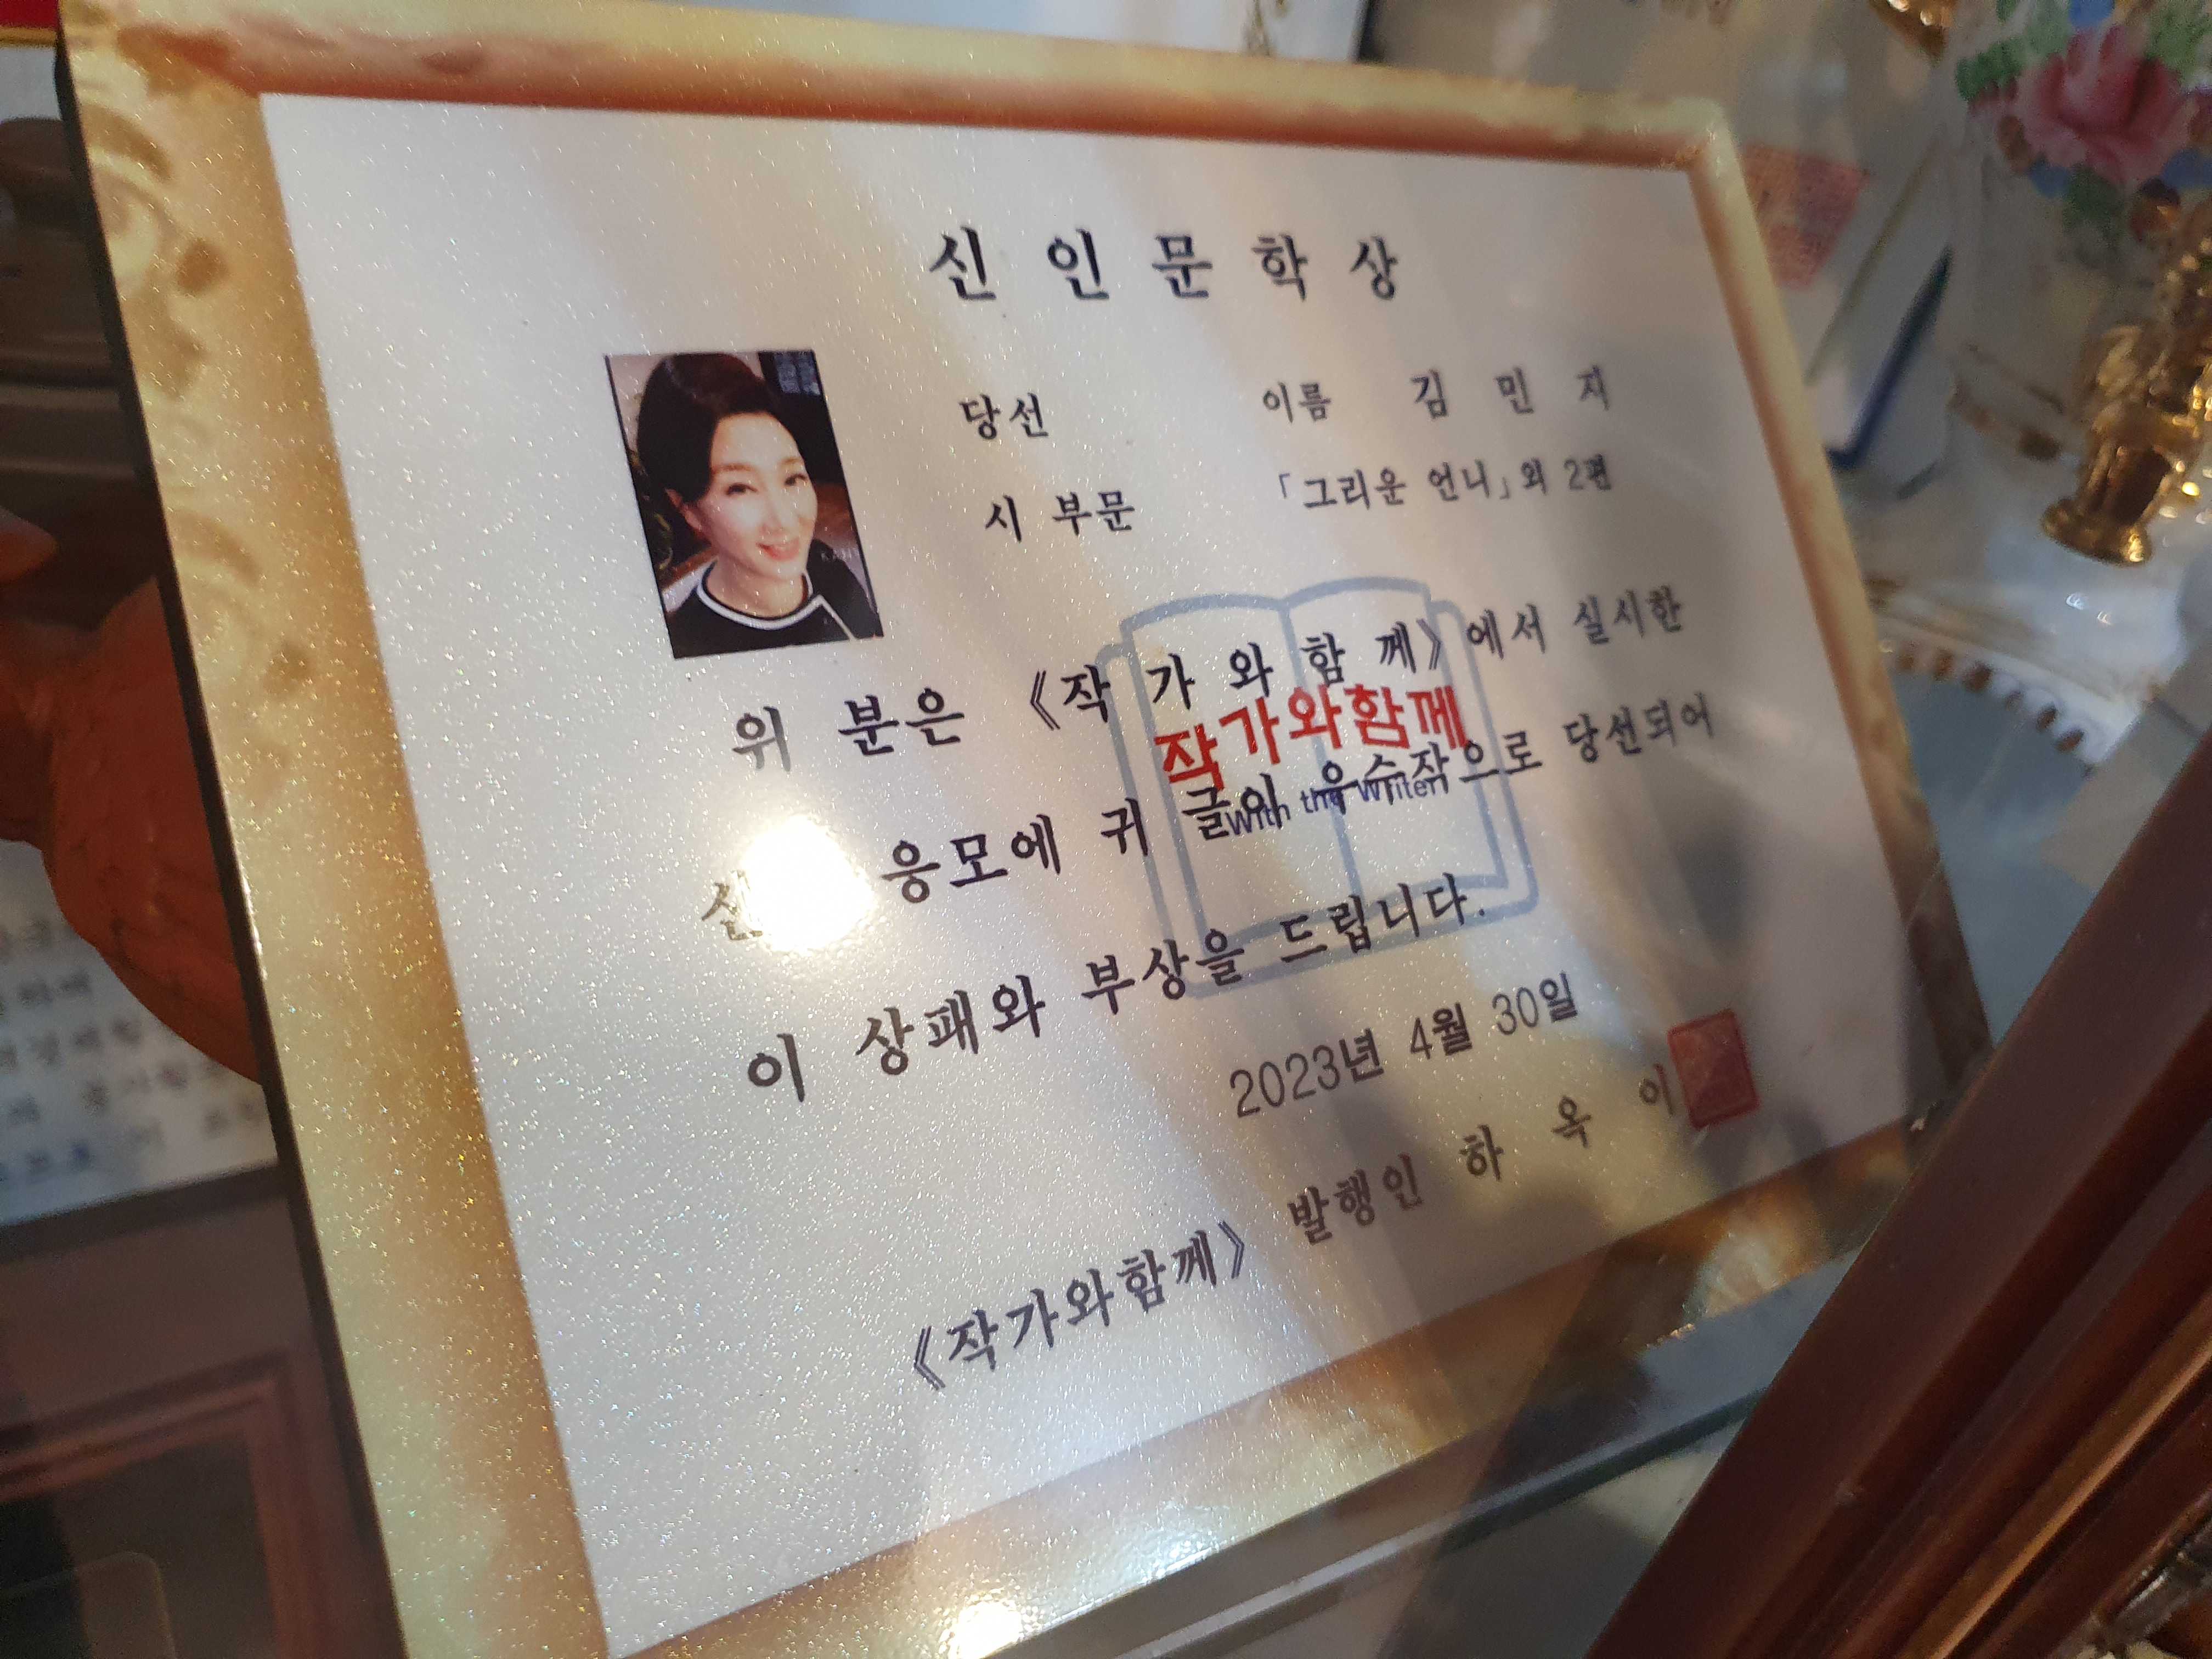 신 인 문 학 상
당선 이름 김 민 지
시 부문 「그리운 언니」외 2편
위 분은 《작 가 와 함 께》에서 실시한
작가와함께
응모에 귀 글이 우수작으로 당선되어
With the Writer
이 상패와 부상을 드립니다.
2023년 4월 30일
《작가와함께》 발행인 하 옥 이